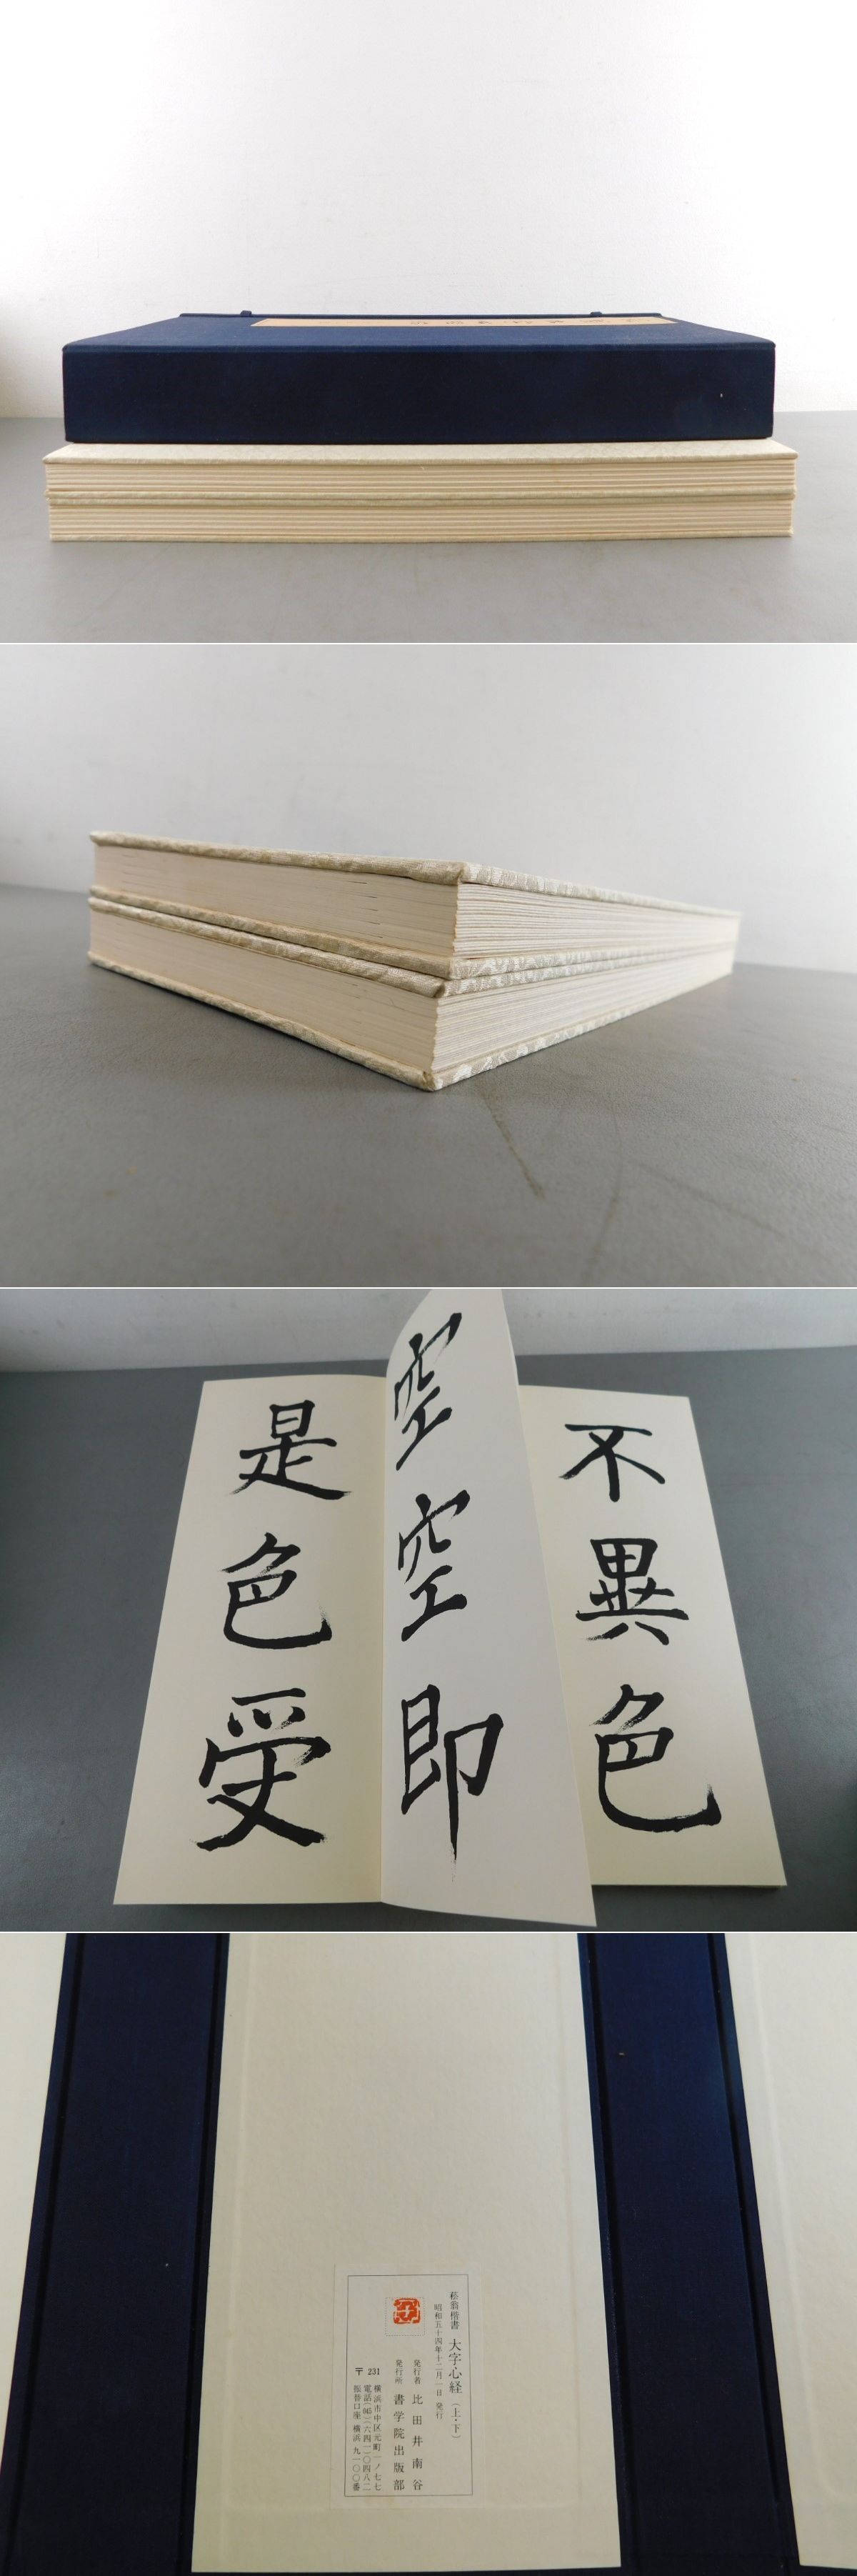 不異色
空空即
是色受
菘翁楷書 大字心経（上・下）
昭和五十四年十二月一日 発行
発行者 比田井南谷
発行所 書学院出版部
〒231 横浜市中区元町一ノ七七
電話（〇四五）六四一〇四八二
振替口座 横浜 九一〇〇番